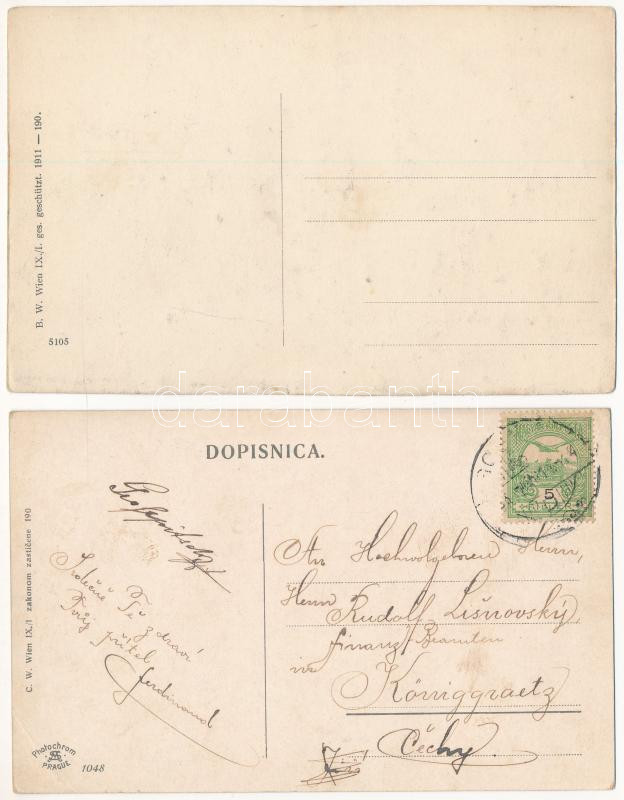 B. W. Wien IX./I. ges. geschützt. 1911 — 190.
5105
darabanth
DOPISNICA.
C. W. Wien IX./I zakonom zastičene 190
Srdečně Tě zdraví
Tvůj přítel
Ferdinand
5
An Hochwolgeboren Herrn,
Herrn Rudolf Lišnovský,
Finanz-Beamten
in
Königgraetz
Čechy.
Photochrom
PRAGUE
1048